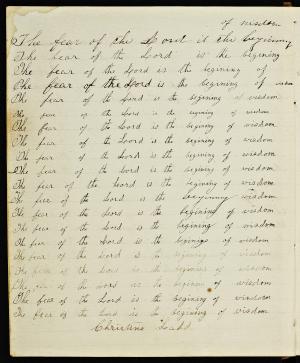 of wisdom
The fear of the Lord is the begining
The fear of the Lord is the begining
The fear of the Lord is the begining of
The fear of the Lord is the begining of wisdom
The fear of the Lord is the begining of wisdom
The fear of the Lord is the begining of wisdom
The fear of the Lord is the begining of wisdom
The fear of the Lord is the begining of wisdom
The fear of the Lord is the begining of wisdom
The fear of the Lord is the begining of wisdom
The fear of the Lord is the begining of wisdom
The fear of the Lord is the begining wisdom
The fear of the Lord is the begining of wisdom
The fear of the Lord is the begining of wisdom
The fear of the Lord is the begining of wisdom
The fear of the Lord is the begining of wisdom
The fear of the Lord is the begining of wisdom
The fear of the is the begining of wisdom
The fear of the Lord is the begining of wisdom
The fear of the Lord is the begining of wisdom
Christine